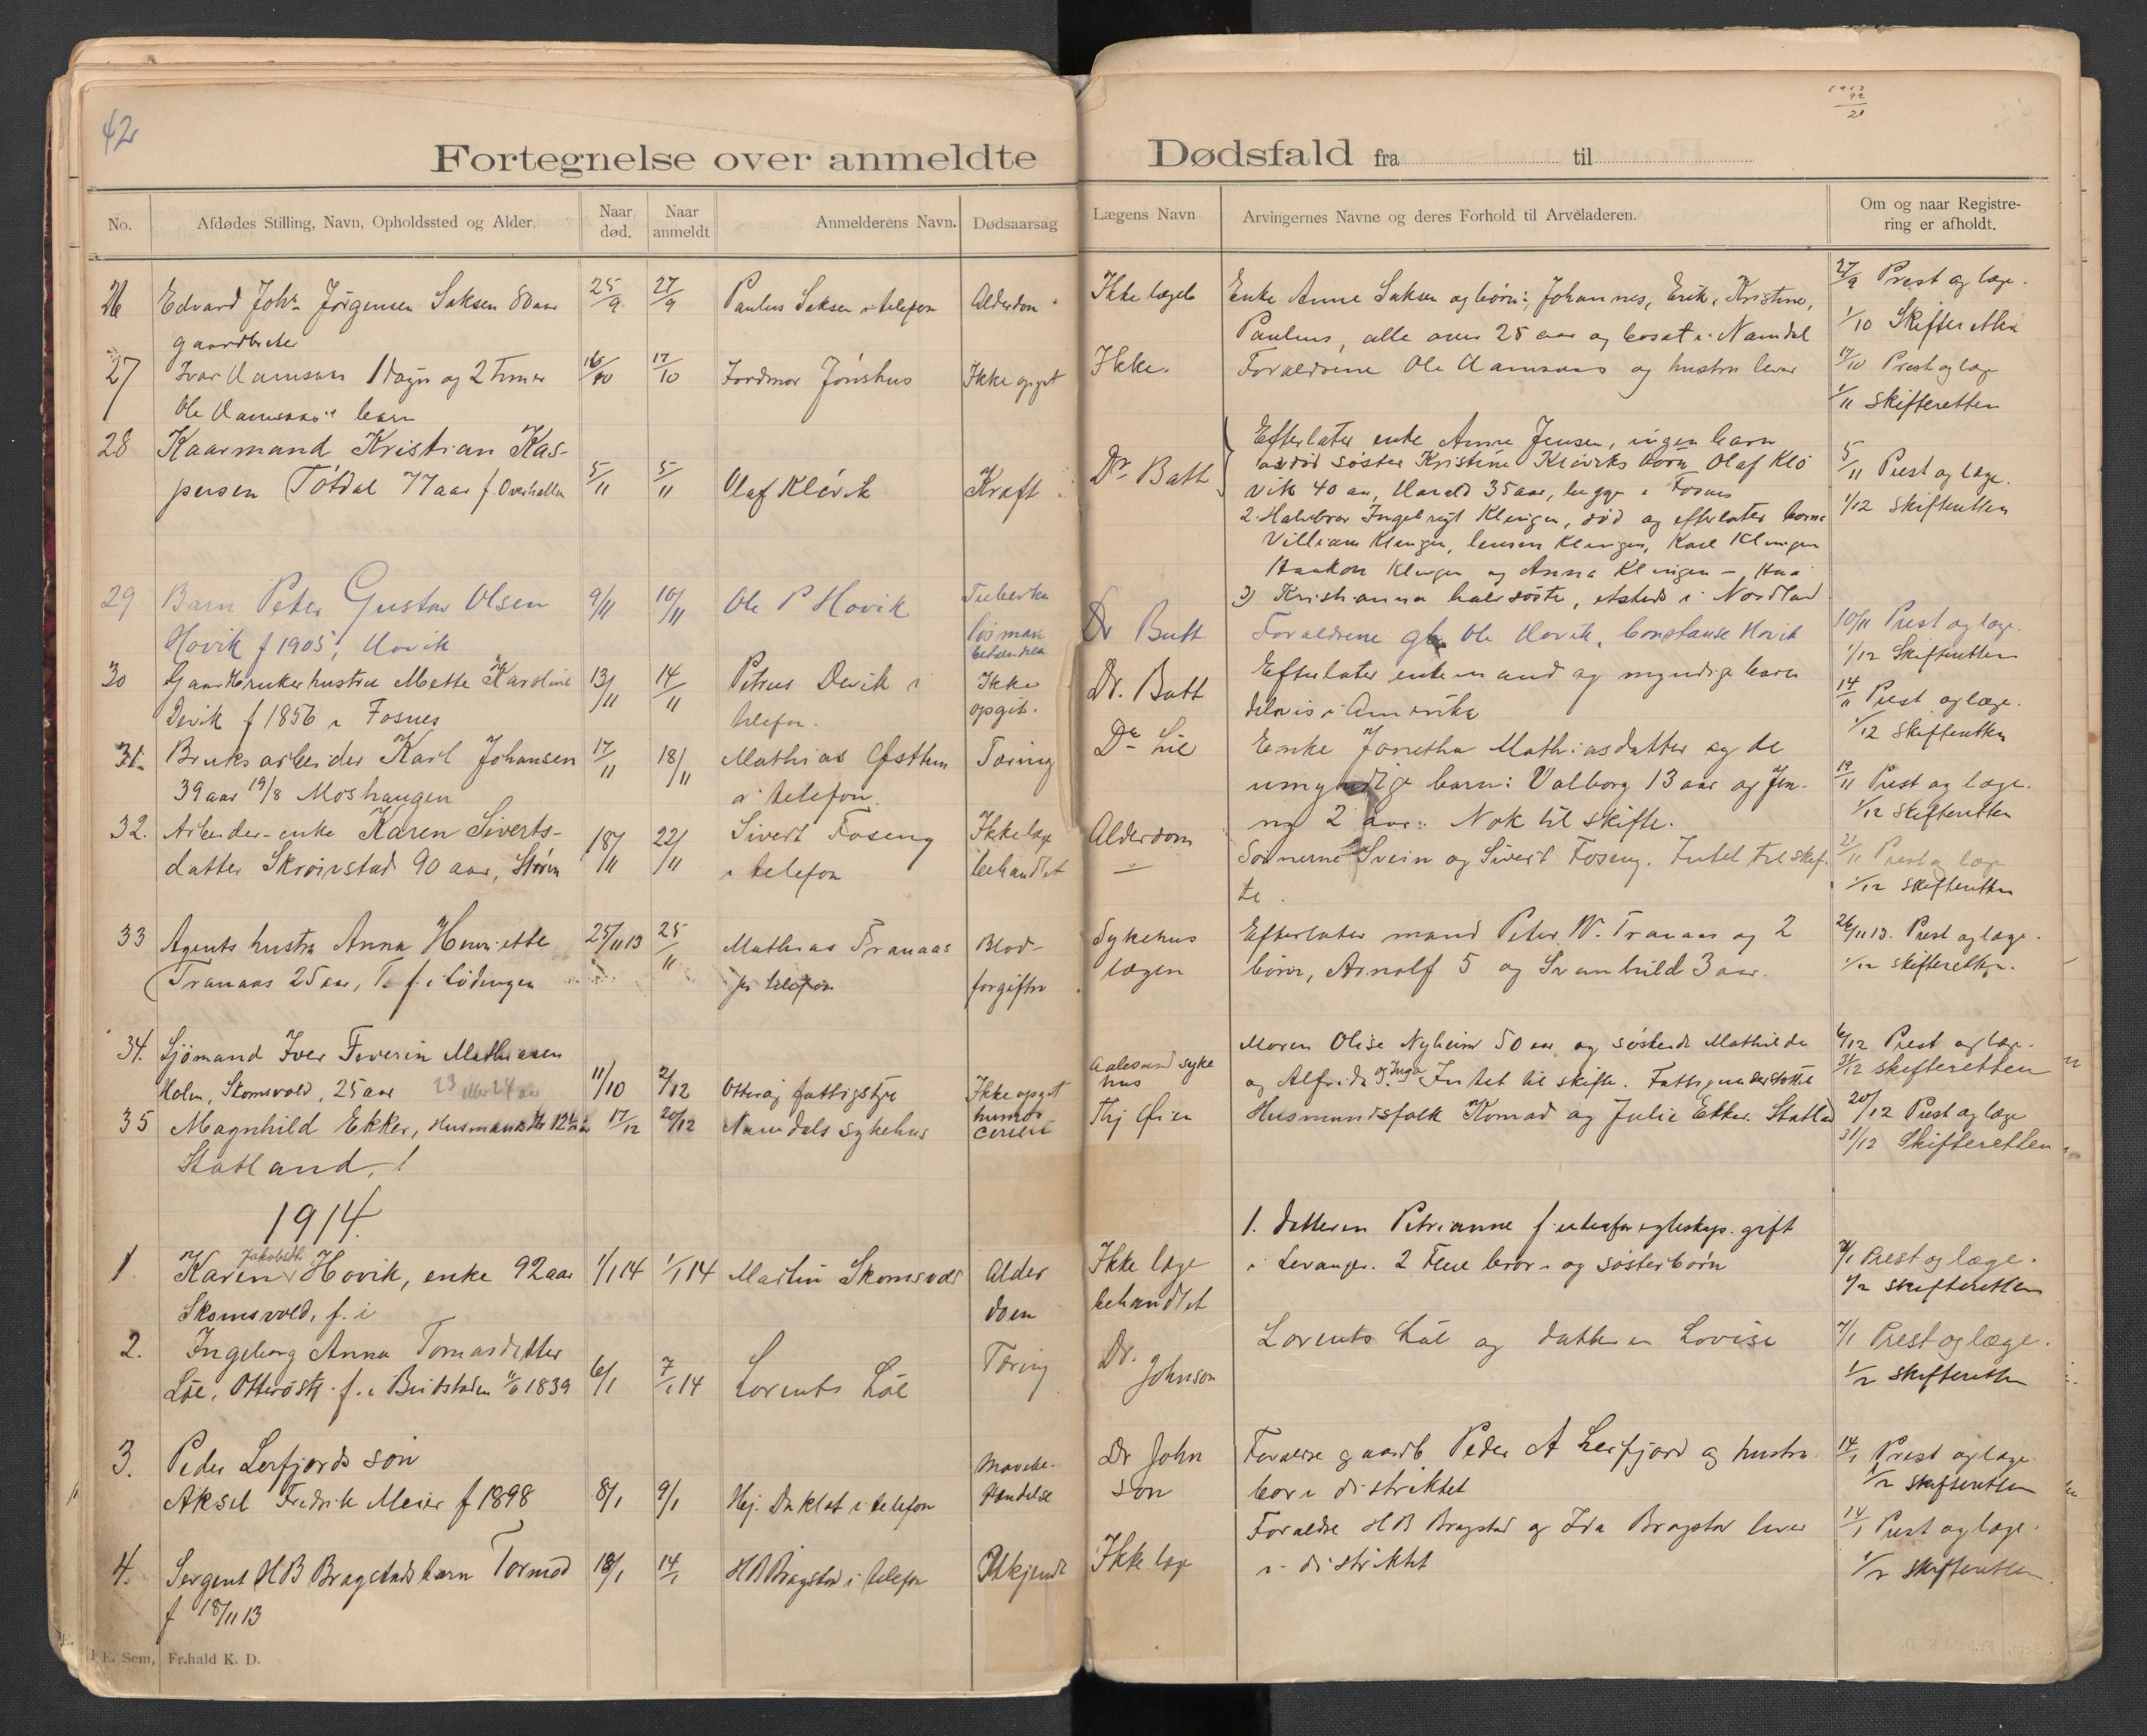 42
Fortegnelse over anmeldte Dødsfald fra til
No. Afdødes Stilling, Navn, Opholdssted og Alder. Naar død. Naar anmeldt Anmelderens Navn. Dødsaarsag Lægens Navn Arvingernes Navne og deres Forhold til Arveladeren. Om og naar Registrering er afholdt.
26 Edvard Johs Jørgensen Saksen 80 aar 25/9 27/9 Paulus Saksen i telefon Alderdom Ikke læge Enke Anne Saksen og børn: Johannes, Erik, Kristine, 27/9 Prest og læge.
gaardbruker Paulus, alle over 25 aar og bosat i Namdal 1/10 Skifteretten
27 Ivar 1 døgn og 2 timer 16/10 17/10 Ikke opgit Ikke. Forældrene Ole og hustru lever 17/10 Prest og læge
Ole barn 1/11 skifteretten
28 Kaarmand Kristian Kas- Efterlater enke Anne Jensen, ingen barn
persen Tøtdal 77 aar f. Overhallen 5/11 5/11 Olaf Kløvik Kræft Dr Batt søster Kristine Kløviks børn Olaf Klø 5/11 Prest og læge.
vik 40 aar, Harald 35 aar, begge i Fosnes 1/12 skifteretten
2. Halvbror Ingebrigt Klingen, død og efterlater børn
Villiam Klingen, Klingen, Karl Klingen
Haakon Klingen og Anna Klingen
3) Kristianna halvsøster, etsteds i Nordland
29 Barn Peter Gustav Olsen 9/11 10/11 Ole P Hovik Tuberku Dr Batt Forældrene Ole Hovik, Constanse Hovik 10/11 Prest og læge.
Hovik f 1905, Hovik løs 1/12 Skifteretten
30 Gaardbrukerhustru Mette Karoline 13/11 14/11 Petrus Devik i Ikke Dr. Batt Efterlater enkemand og myndige barn 14/11 Prest og læge.
Devik f 1856 i Fosnes telefon. opgit. delvis i Amerika 1/12 skifteretten
31. Bruksarbeider Karl Johansen 17/11 18/11 Mathias Tæring Dr Lie Enke Jonetha Mathiasdatter og de 19/11 Prest og læge.
39 aar 19/8 Moshaugen i telefon. umyndige barn: Valborg 13 aar og Jen- 1/12 skifteretten
ny 2 aar. Nok til skifte.
32. Arbeider-enke Karen Siverts- 18/11 22/11 Sivert Foseng Ikke læge Alderdom Sønnerne Svein og Sivert Foseng. Intet til skif- Prest og læge
datter Skrøivstad 90 aar, Støren i telefon behandlet — te. 1/12 skifteretten
33 Agents hustru Anna Henriette 25/11 13 25/11 Mathias Tranaas Blod- Sykehus Efterlater mand Peter W. Tranaas og 2 26/11 13. Prest og læge.
Tranaas 25 aar, f. i Lødingen pr telefon forgiftn lægen børn, Arnolf 5 og Svanhild 3 aar. 1/12 skifteretten.
34. Sjömand Iver Severin Mathiesen Aalesund syke Moren Olise Nyheim 50 aar og søskende Mathilde 6/12 Prest og læge.
Holm, Skomsvold, 25 aar 23 eller 24 aar 11/10 2/12 Otterøy fattigstyre Ikke opgit hus og Alfrida og Inga Intet til skifte. Fattigunderstøttet 31/12 skifteretten
35 Magnhild Ekker, 17/12 20/12 Namdals sykehus Thj Øien Husmandsfolk Konrad og Julie Ekker. Statland 20/12 Prest og læge
Statland. 31/12 Skifteretten
1914.
1. Datteren Petrianne f. utenfor egteskap. gift
1 Karen Jakobsdt. Hovik, enke 92 aar 1/1 14 1/1 14 Martin Skomsvold Alder Ikke læge i Levanger. 2 Flere bror- og søsterbørn Prest og læge.
Skomsvold, f. i dom behandlet 1/2 skifteretten
2. Ingeborg Anna Tomasdatter 6/1 7/1 14 Lorents Löe Tæring Dr. Johnson Lorents Löe og datteren Lovise 7/1 Prest og læge.
Löe, Otterö f. i Beidstaden 1839 1/2 skifteretten
3. Peder Lerfjords søn Mavebe- Dr John Forældre gaardb Peder A Lerfjord og hustru 14/1 Prest og læge
Aksel Fredrik Meier f 1898 8/1 9/1 i telefon tændelse son bor i distriktet 1/2 skifteretten
4. Sergent HB Bragstads barn Tormod 13/1 14/1 HB Bragstad i telefon Ukjendt Ikke læge Forældre HB Bragstad og Ida Bragstad lever 14/1 Prest og læge.
f 18/11 13 i distriktet 1/2 skifteretten
E. Sem, Fr.hald K. D.